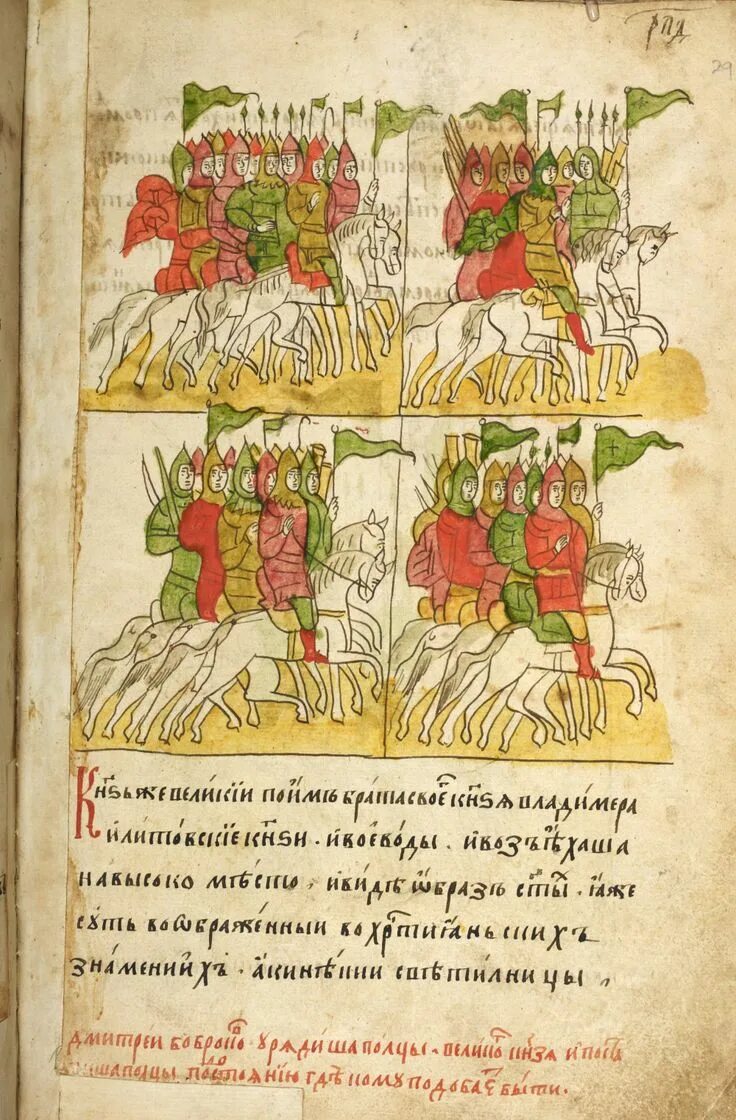 рпд
29
Кн҃зь же великїи пои́мъ брата своег̑ кн҃зѧ владимера
и҆ лито́вскїе кн҃зи . и҆ воево́ды . и҆ возъѣ́хаша
на высоко мѣсто , и҆ видѣ ѡ҆бразъ ст҃ы́ . ꙗ҆же
су́ть воѡбраже́нныи во хрⷭ҇тиꙗ́ньскихъ
зна́менїи҆хъ . а҆ки нѣ́кїи свѣти́лницы ,
дмитреи боброко . урѧдиша полцы . велико кнѧзѧ и
полцы по достоѧнїю гдѣ кому подобаетъ быти .